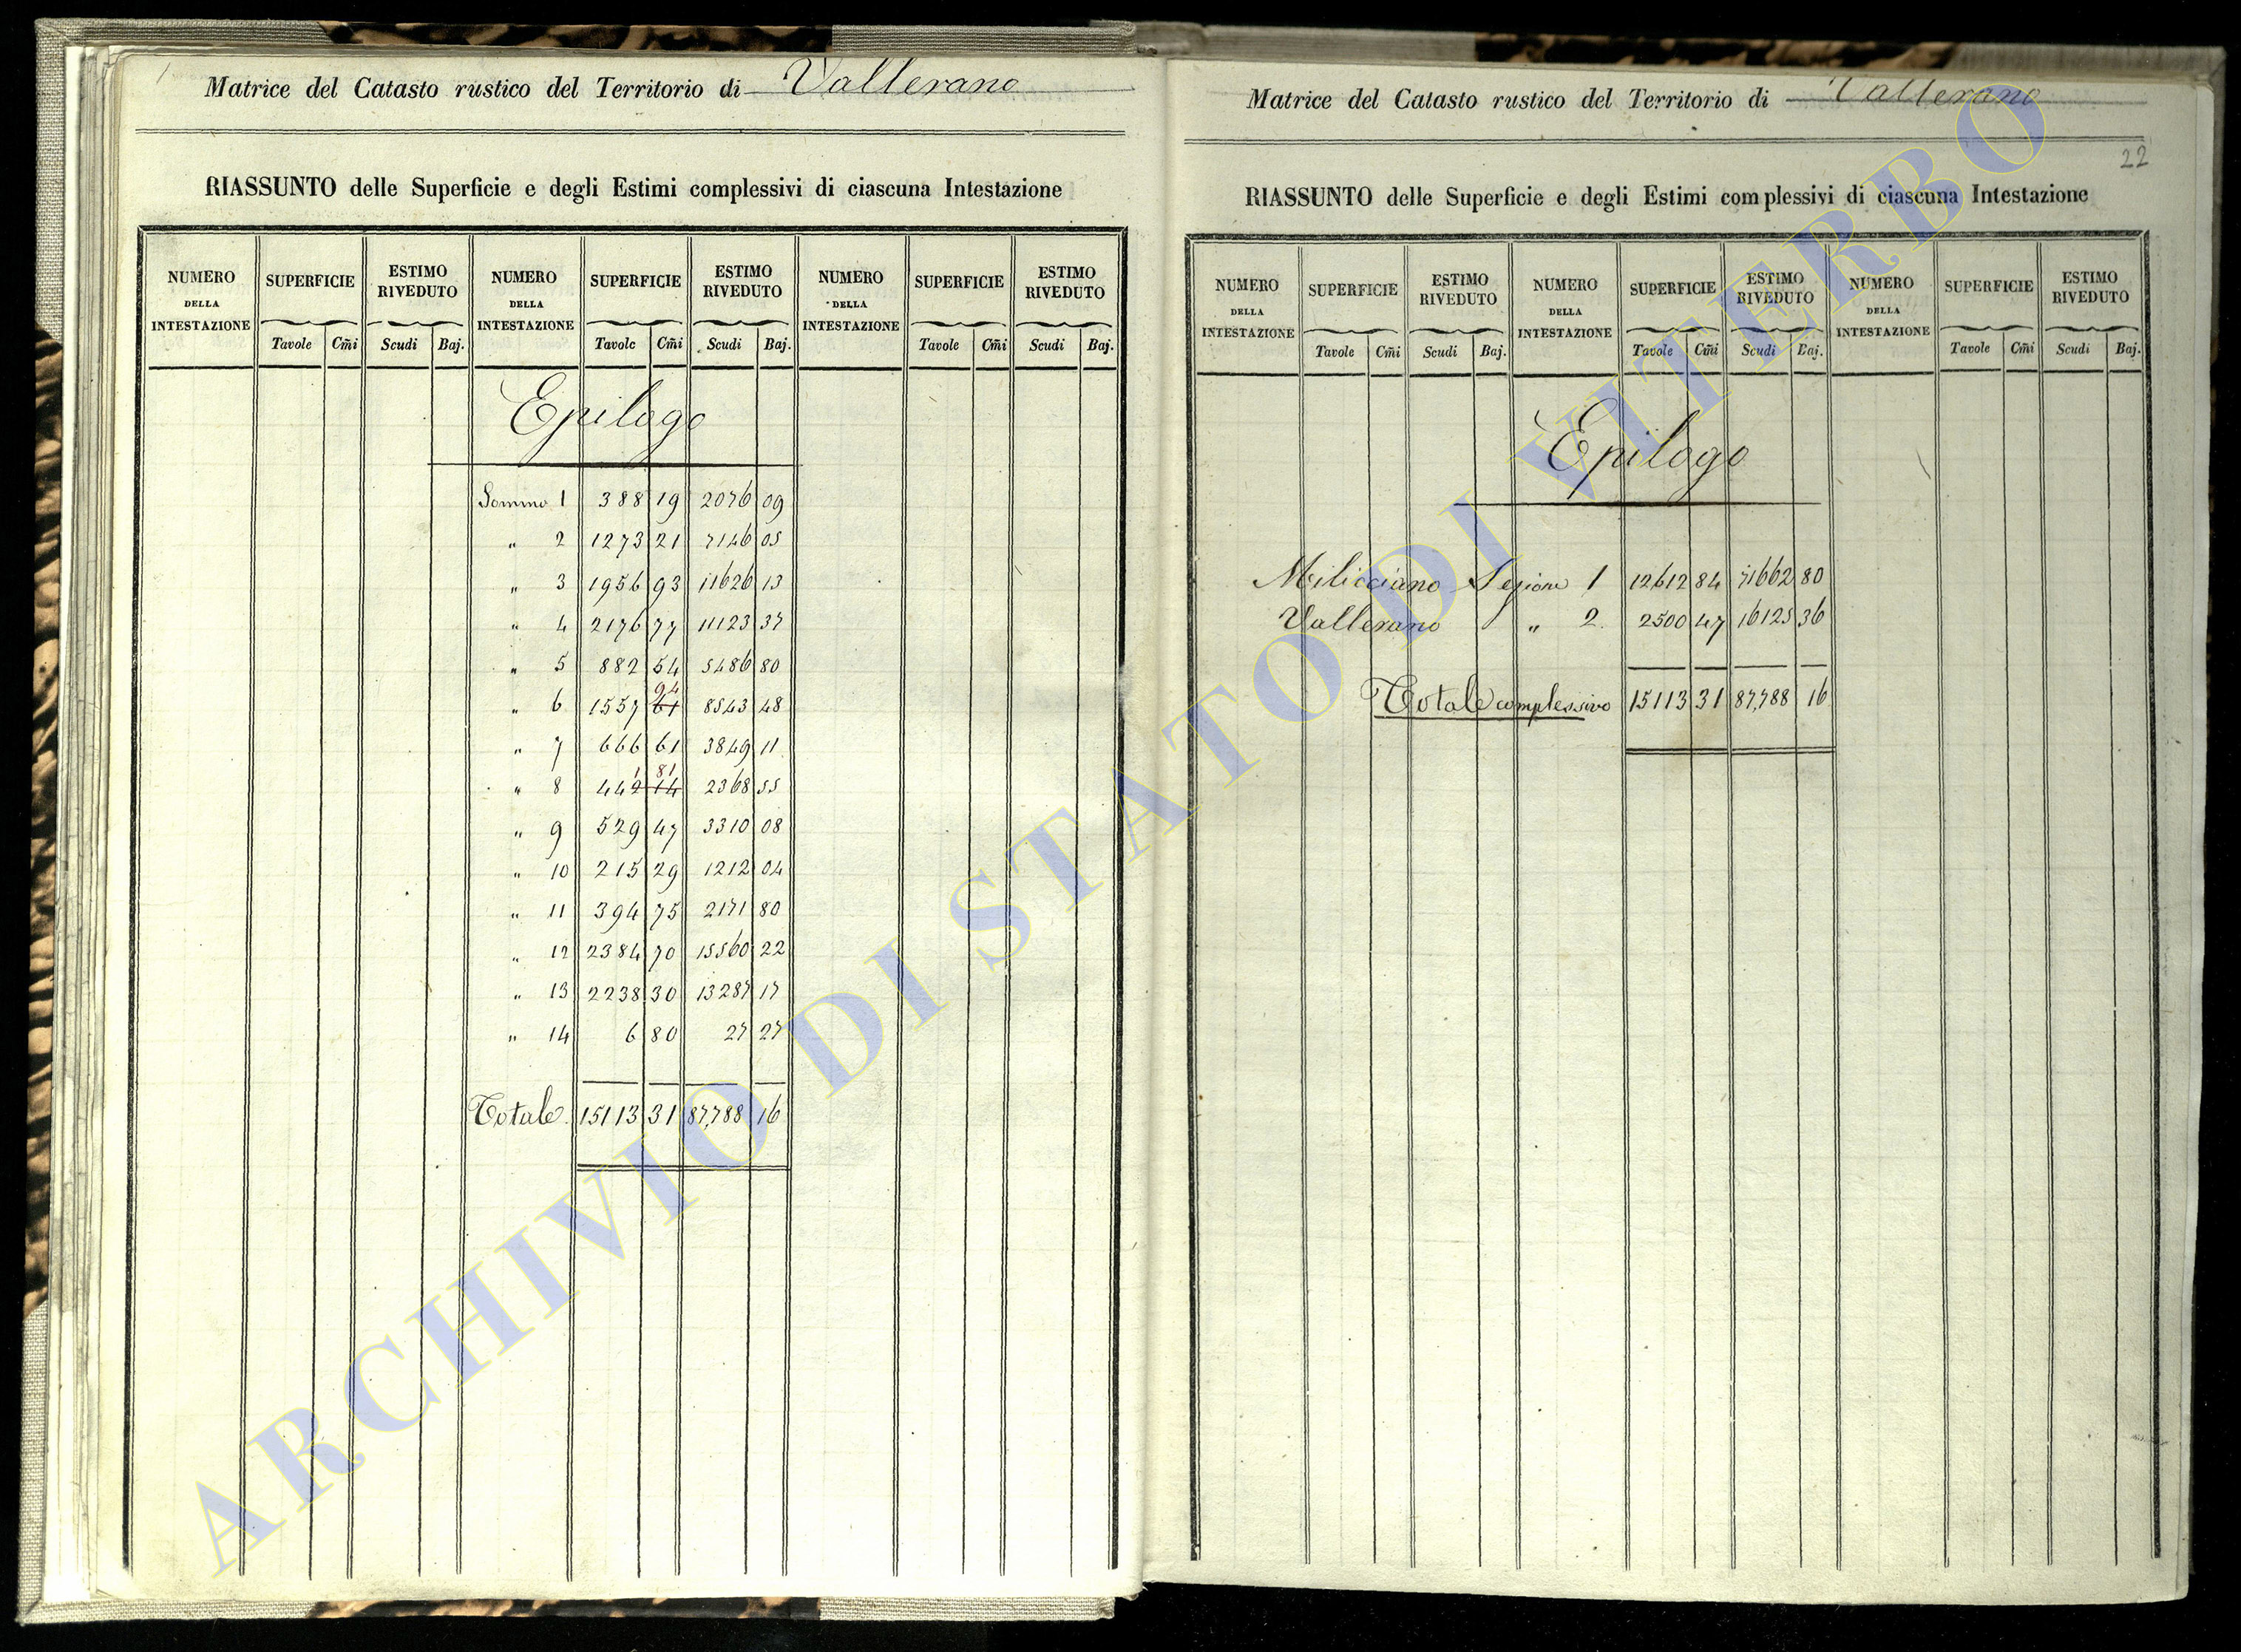 Matrice del Catasto rustico del Territorio di Vallerano
RIASSUNTO delle Superficie e degli Estimi complessivi di ciascuna Intestazione
NUMERO DELLA INTESTAZIONE SUPERFICIE ESTIMO RIVEDUTO NUMERO DELLA INTESTAZIONE SUPERFICIE ESTIMO RIVEDUTO NUMERO DELLA INTESTAZIONE SUPERFICIE ESTIMO RIVEDUTO
Tavole Cm̃i Scudi Baj. Tavole Cm̃i Scudi Baj. Tavole Cm̃i Scudi Baj.
Epilogo
Somma 1 388 19 2076 09
" 2 1273 21 7146 05
" 3 1956 93 11626 13
" 4 2176 77 11123 37
" 5 882 54 5486 80
94
" 6 1557 61 8543 48
" 7 666 61 3849 11
1 81
" 8 442 14 2368 55
" 9 529 47 3310 08
" 10 215 29 1212 04
" 11 394 75 2171 80
" 12 2384 70 15560 22
" 13 2238 30 13287 17
" 14 6 80 27 27
Totale 15113 31 87,788 16
Matrice del Catasto rustico del Territorio di Vallerano
22
RIASSUNTO delle Superficie e degli Estimi complessivi di ciascuna Intestazione
NUMERO DELLA INTESTAZIONE SUPERFICIE ESTIMO RIVEDUTO NUMERO DELLA INTESTAZIONE SUPERFICIE ESTIMO RIVEDUTO NUMERO DELLA INTESTAZIONE SUPERFICIE ESTIMO RIVEDUTO
Tavole Cm̃i Scudi Baj. Tavole Cm̃i Scudi Baj. Tavole Cm̃i Scudi Baj.
Epilogo
Milicciano Sezione 1 12612 84 71662 80
Vallerano " 2. 2500 47 16125 36
Totale complessivo 15113 31 87,788 16
ARCHIVIO DI STATO DI VITERBO